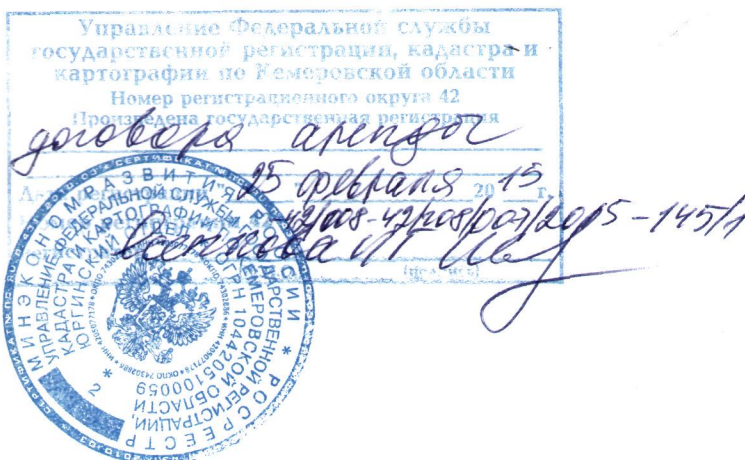 Управление Федеральной службы
государственной регистрации, кадастра и
картографии по Кемеровской области
Номер регистрационного округа 42
Произведена государственная регистрация
договора аренды
25 февраля 2015 г.
42/008-42/208/007/2015-145/1
(подпись)
МИНЭКОНОМРАЗВИТИЯ РОССИИ * РОСРЕЕСТР
УПРАВЛЕНИЕ ФЕДЕРАЛЬНОЙ СЛУЖБЫ ГОСУДАРСТВЕННОЙ РЕГИСТРАЦИИ,
КАДАСТРА И КАРТОГРАФИИ ПО КЕМЕРОВСКОЙ ОБЛАСТИ
ЮРГИНСКИЙ ОТДЕЛ * ОГРН 1044205100059
* 2 *